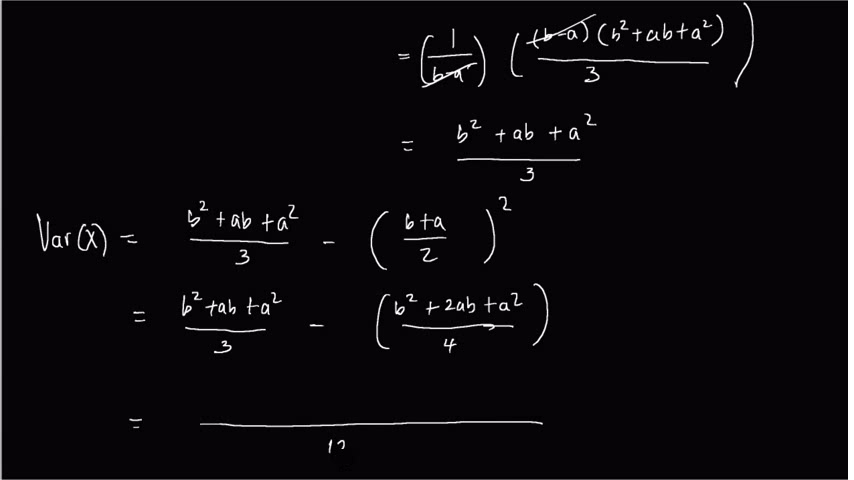 = (1/(b-a)) ((b-a)(b² + ab + a²)/3)
= (b² + ab + a²)/3
Var(X) = (b² + ab + a²)/3 - ((b+a)/2)²
= (b² + ab + a²)/3 - ((b² + 2ab + a²)/4)
= ———